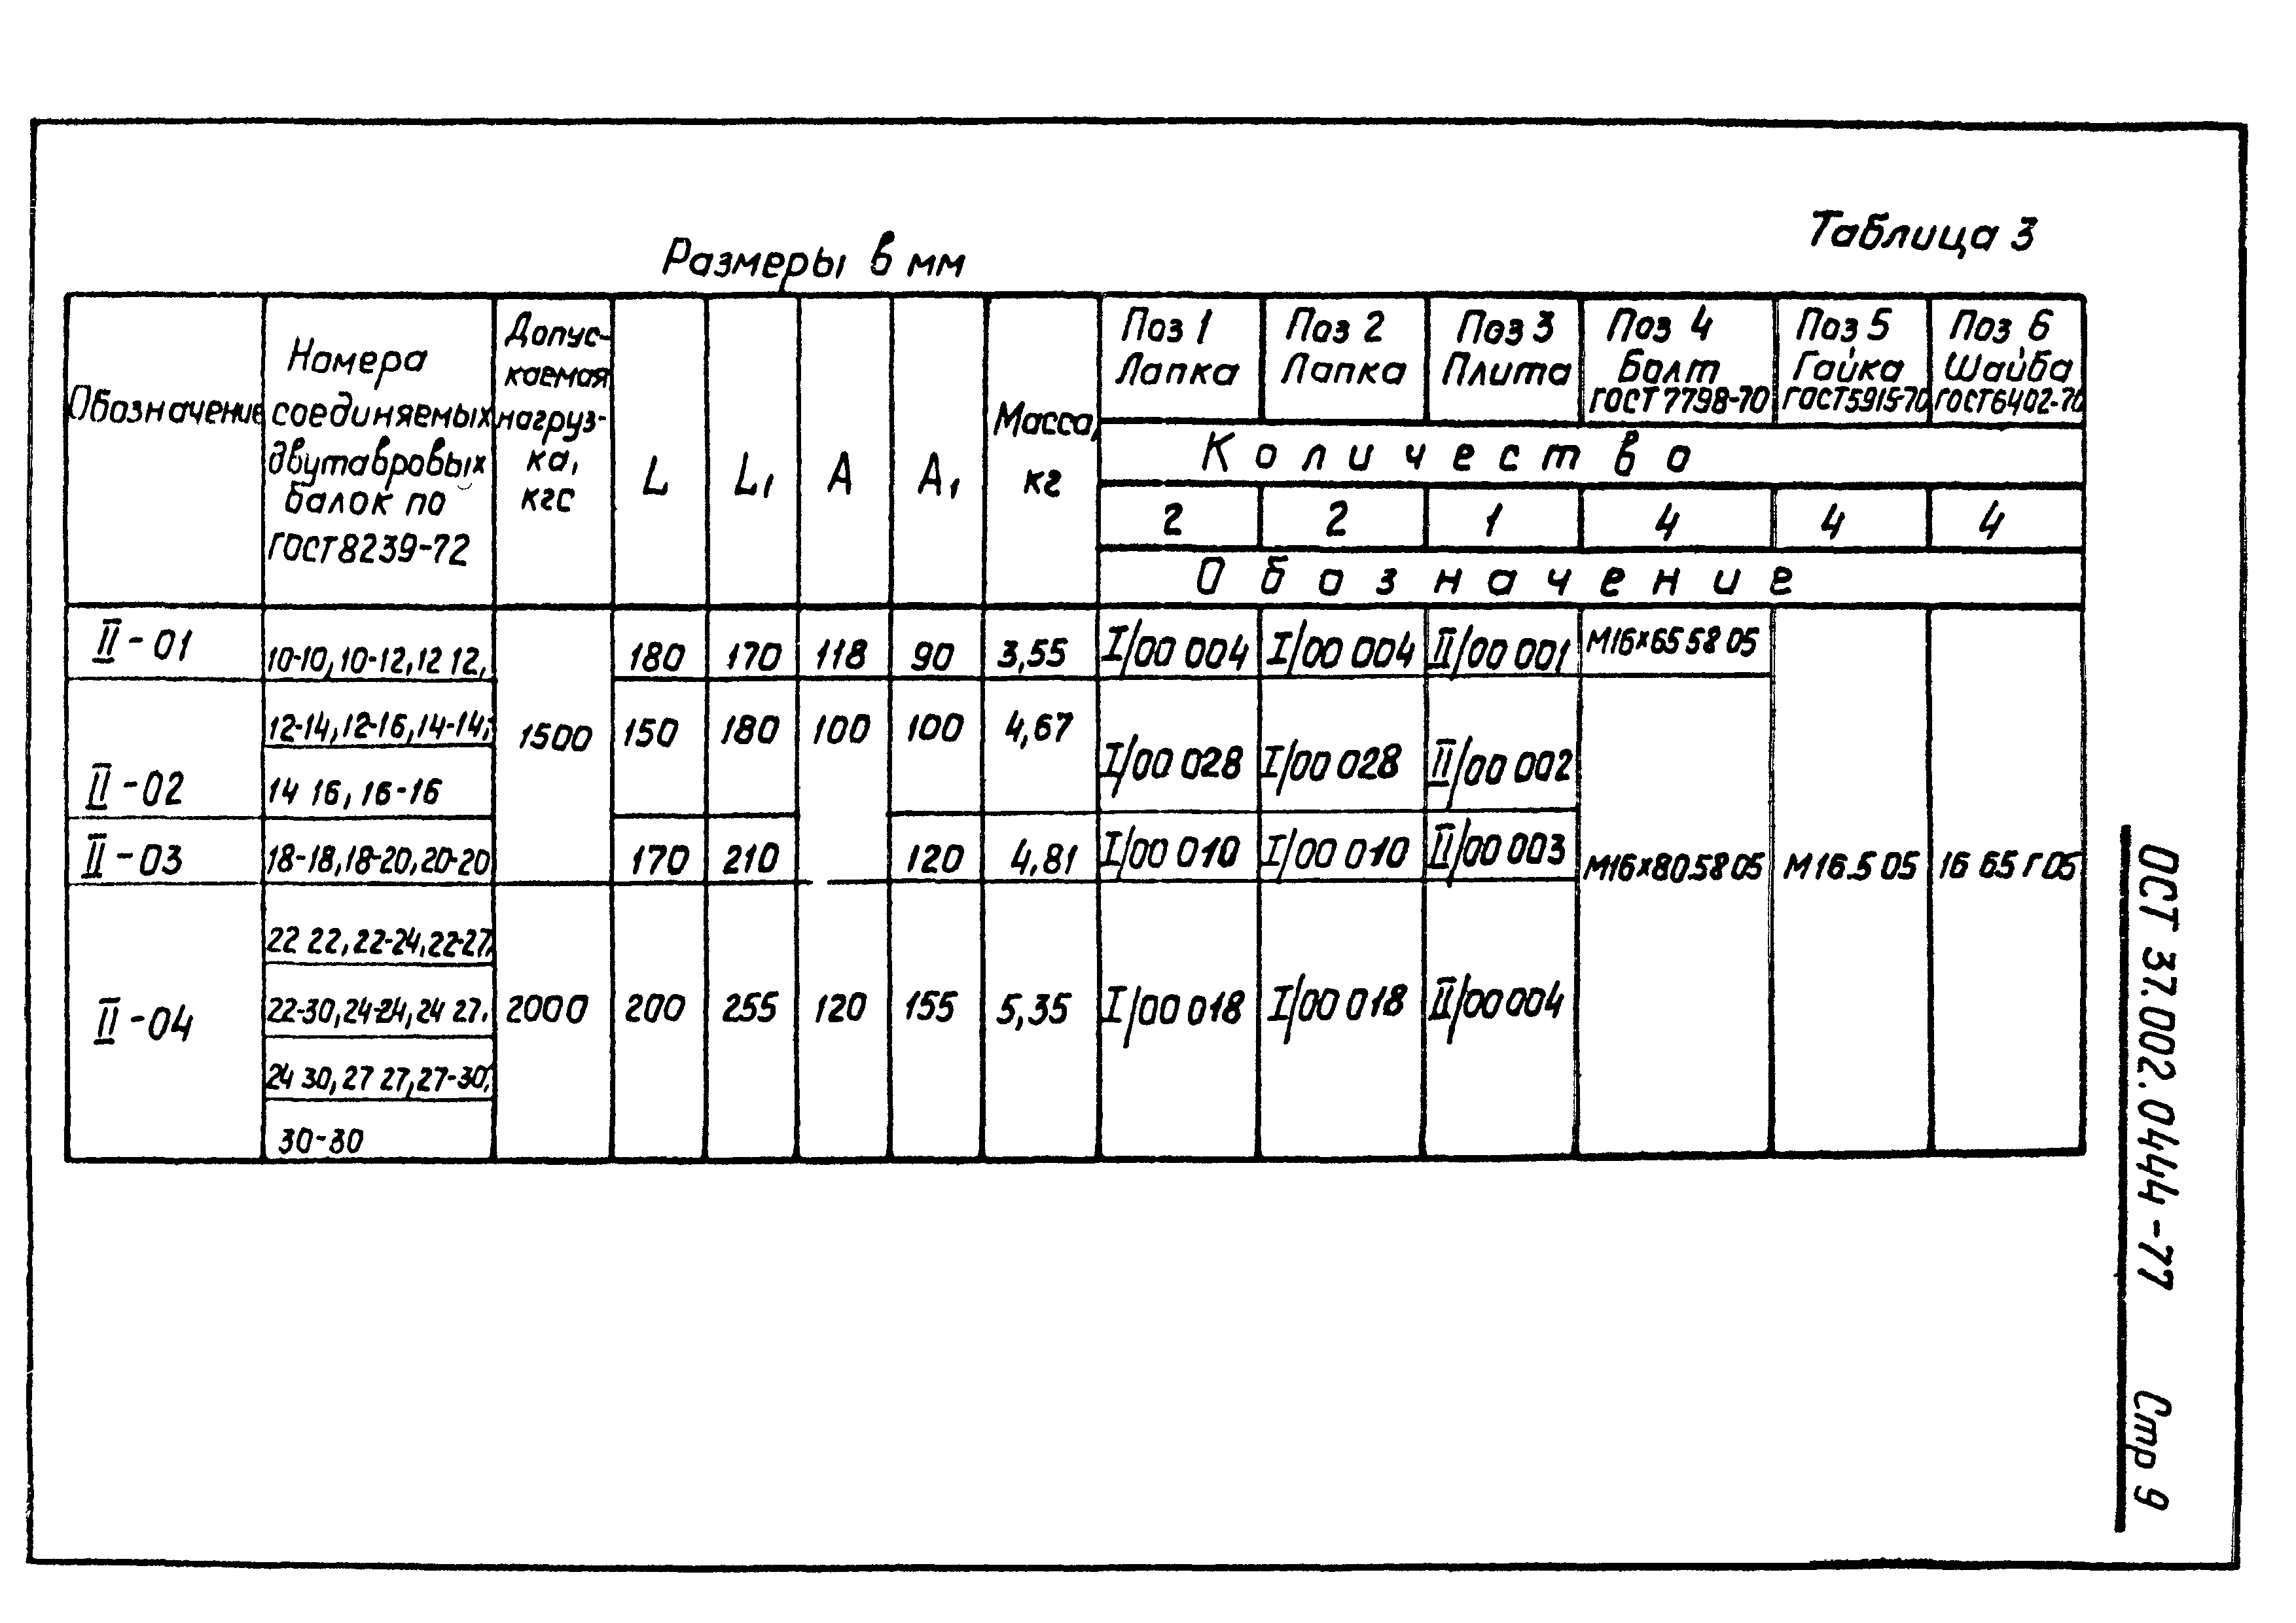 Таблица 3
Размеры в мм
Обозначение
Номера
соединяемых
двутавровых
балок по
ГОСТ 8239-72
Допус-
каемая
нагруз-
ка,
кгс
L
L1
A
A1
Масса,
кг
Поз 1
Лапка
Поз 2
Лапка
Поз 3
Плита
Поз 4
Болт
ГОСТ 7798-70
Поз 5
Гайка
ГОСТ 5915-70
Поз 6
Шайба
ГОСТ 6402-70
Количество
2 2 1 4 4 4
Обозначение
II-01 10-10, 10-12, 12 12, 180 170 118 90 3,55 I/00 004 I/00 004 II/00 001 М16×65 58 05
12-14, 12-16, 14-14, 1500 150 180 100 100 4,67
II-02 14 16, 16-16 I/00 028 I/00 028 II/00 002
II-03 18-18, 18-20, 20-20 170 210 120 4,81 I/00 010 I/00 010 II/00 003 М16×80.58 05 М16.5 05 16 65 Г 05
22 22, 22-24, 22-27,
II-04 22-30, 24-24, 24 27, 2000 200 255 120 155 5,35 I/00 018 I/00 018 II/00 004
24 30, 27 27, 27-30,
30-30
ОСТ 37.002.0444-77 Стр 9